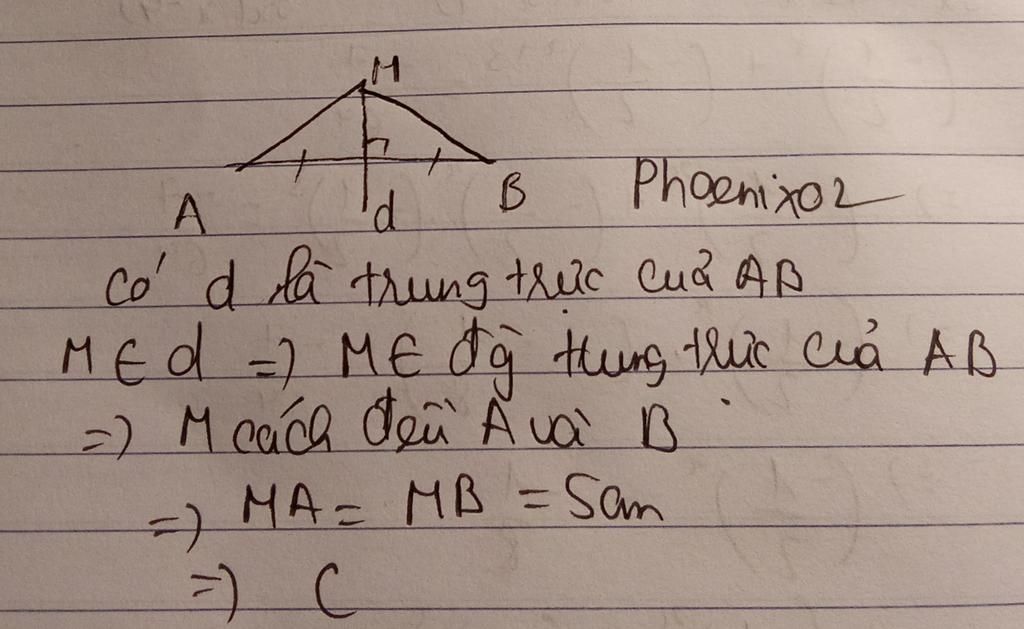 M
A
d
B
Phoenix02
có d là trung trực của AB
M ∈ d => M ∈ đg trung trực của AB
=> M cách đều A và B
=> MA = MB = 5cm
=> C